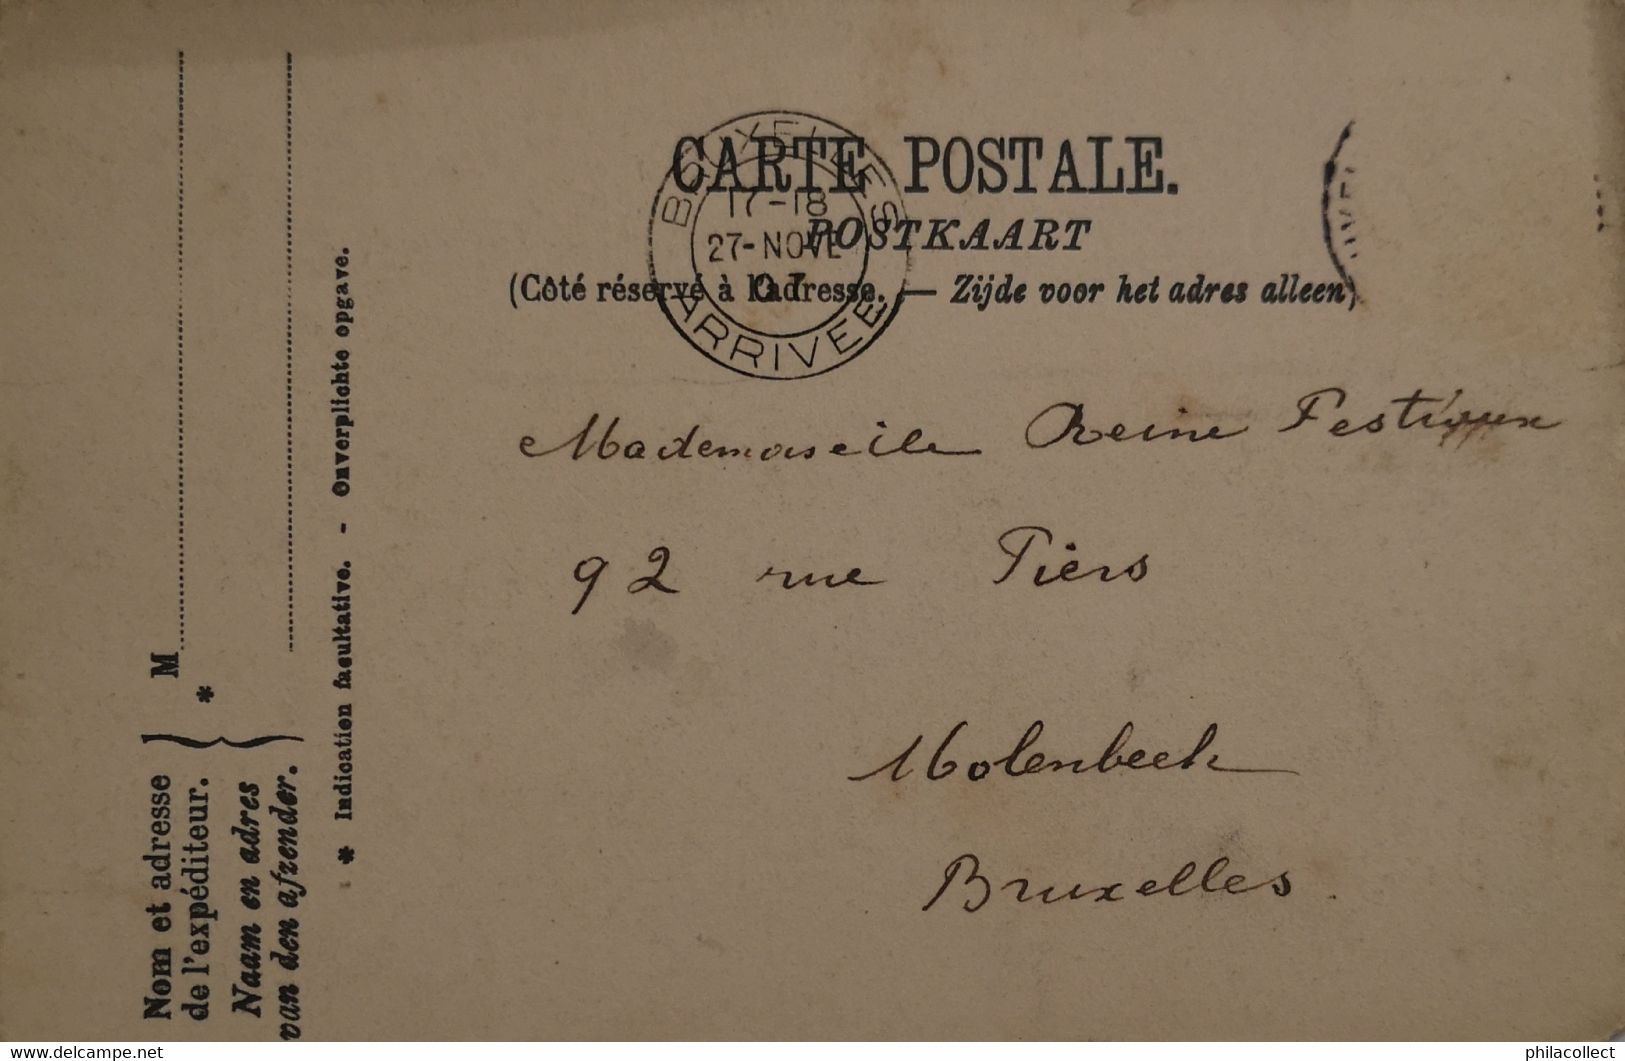 CARTE POSTALE.
POSTKAART
(Côté réservé à l'adresse. — Zijde voor het adres alleen)
BRUXELLES
17-18
27-NOVE
07
ARRIVEE
Mademoiselle Reine
92 rue Piers
Molenbeek
Bruxelles.
M
*
Nom et adresse
de l'expéditeur.
Naam en adres
van den afzender.
* Indication facultative. - Onverplichte opgave.
www.delcampe.net
philacollect